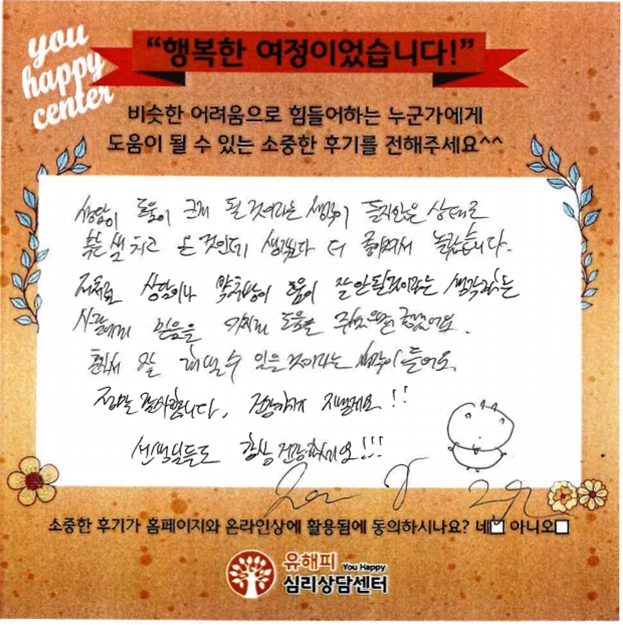 you
happy
center
“행복한 여정이었습니다!”
비슷한 어려움으로 힘들어하는 누군가에게
도움이 될 수 있는 소중한 후기를 전해주세요^^
상담이 도움이 크게 될 것이라는 생각이 들지않은 상태로
치고 온 것인데 생각보다 더 좋아져서 놀랐습니다.
저처럼 상담이나 도움이 잘 안될것이라는 생각하는
사람에게 믿음을
잘 수 있을 것이라는 생각이 들어요.
정말 감사합니다, 건강하게 지낼게요!!
선생님들도 항상 건강하세요!!!
소중한 후기가 홈페이지와 온라인상에 활용됨에 동의하시나요? 네 아니오
유해피 You Happy
심리상담센터